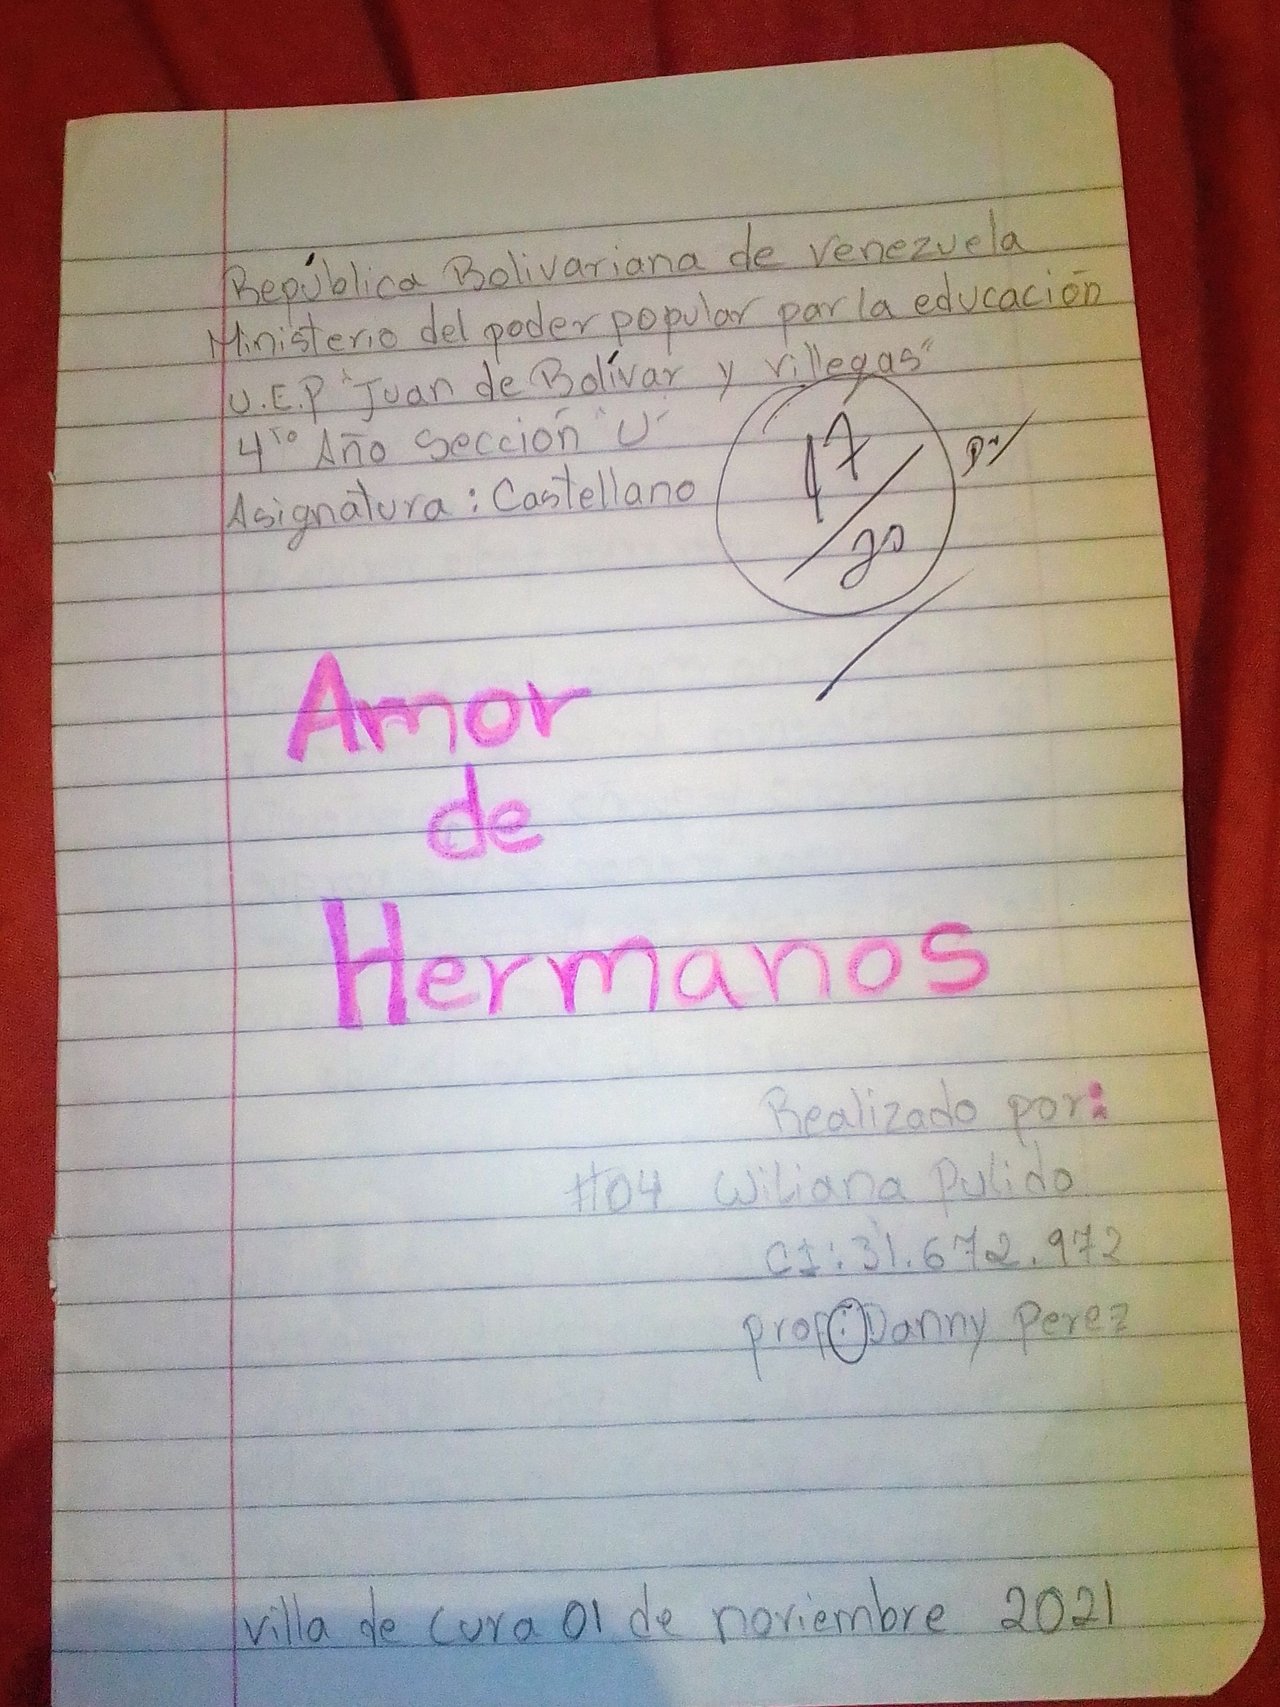 República Bolivariana de Venezuela
Ministerio del poder popular par la educación
U.E.P "Juan de Bolívar y Villegas"
4to Año Sección "U"
Asignatura: Castellano
17/20
Amor
de
Hermanos
Realizado por:
#04 Wiliana Pulido
CI: 31.672.972
prof: Danny Perez
Villa de Cura 01 de noviembre 2021